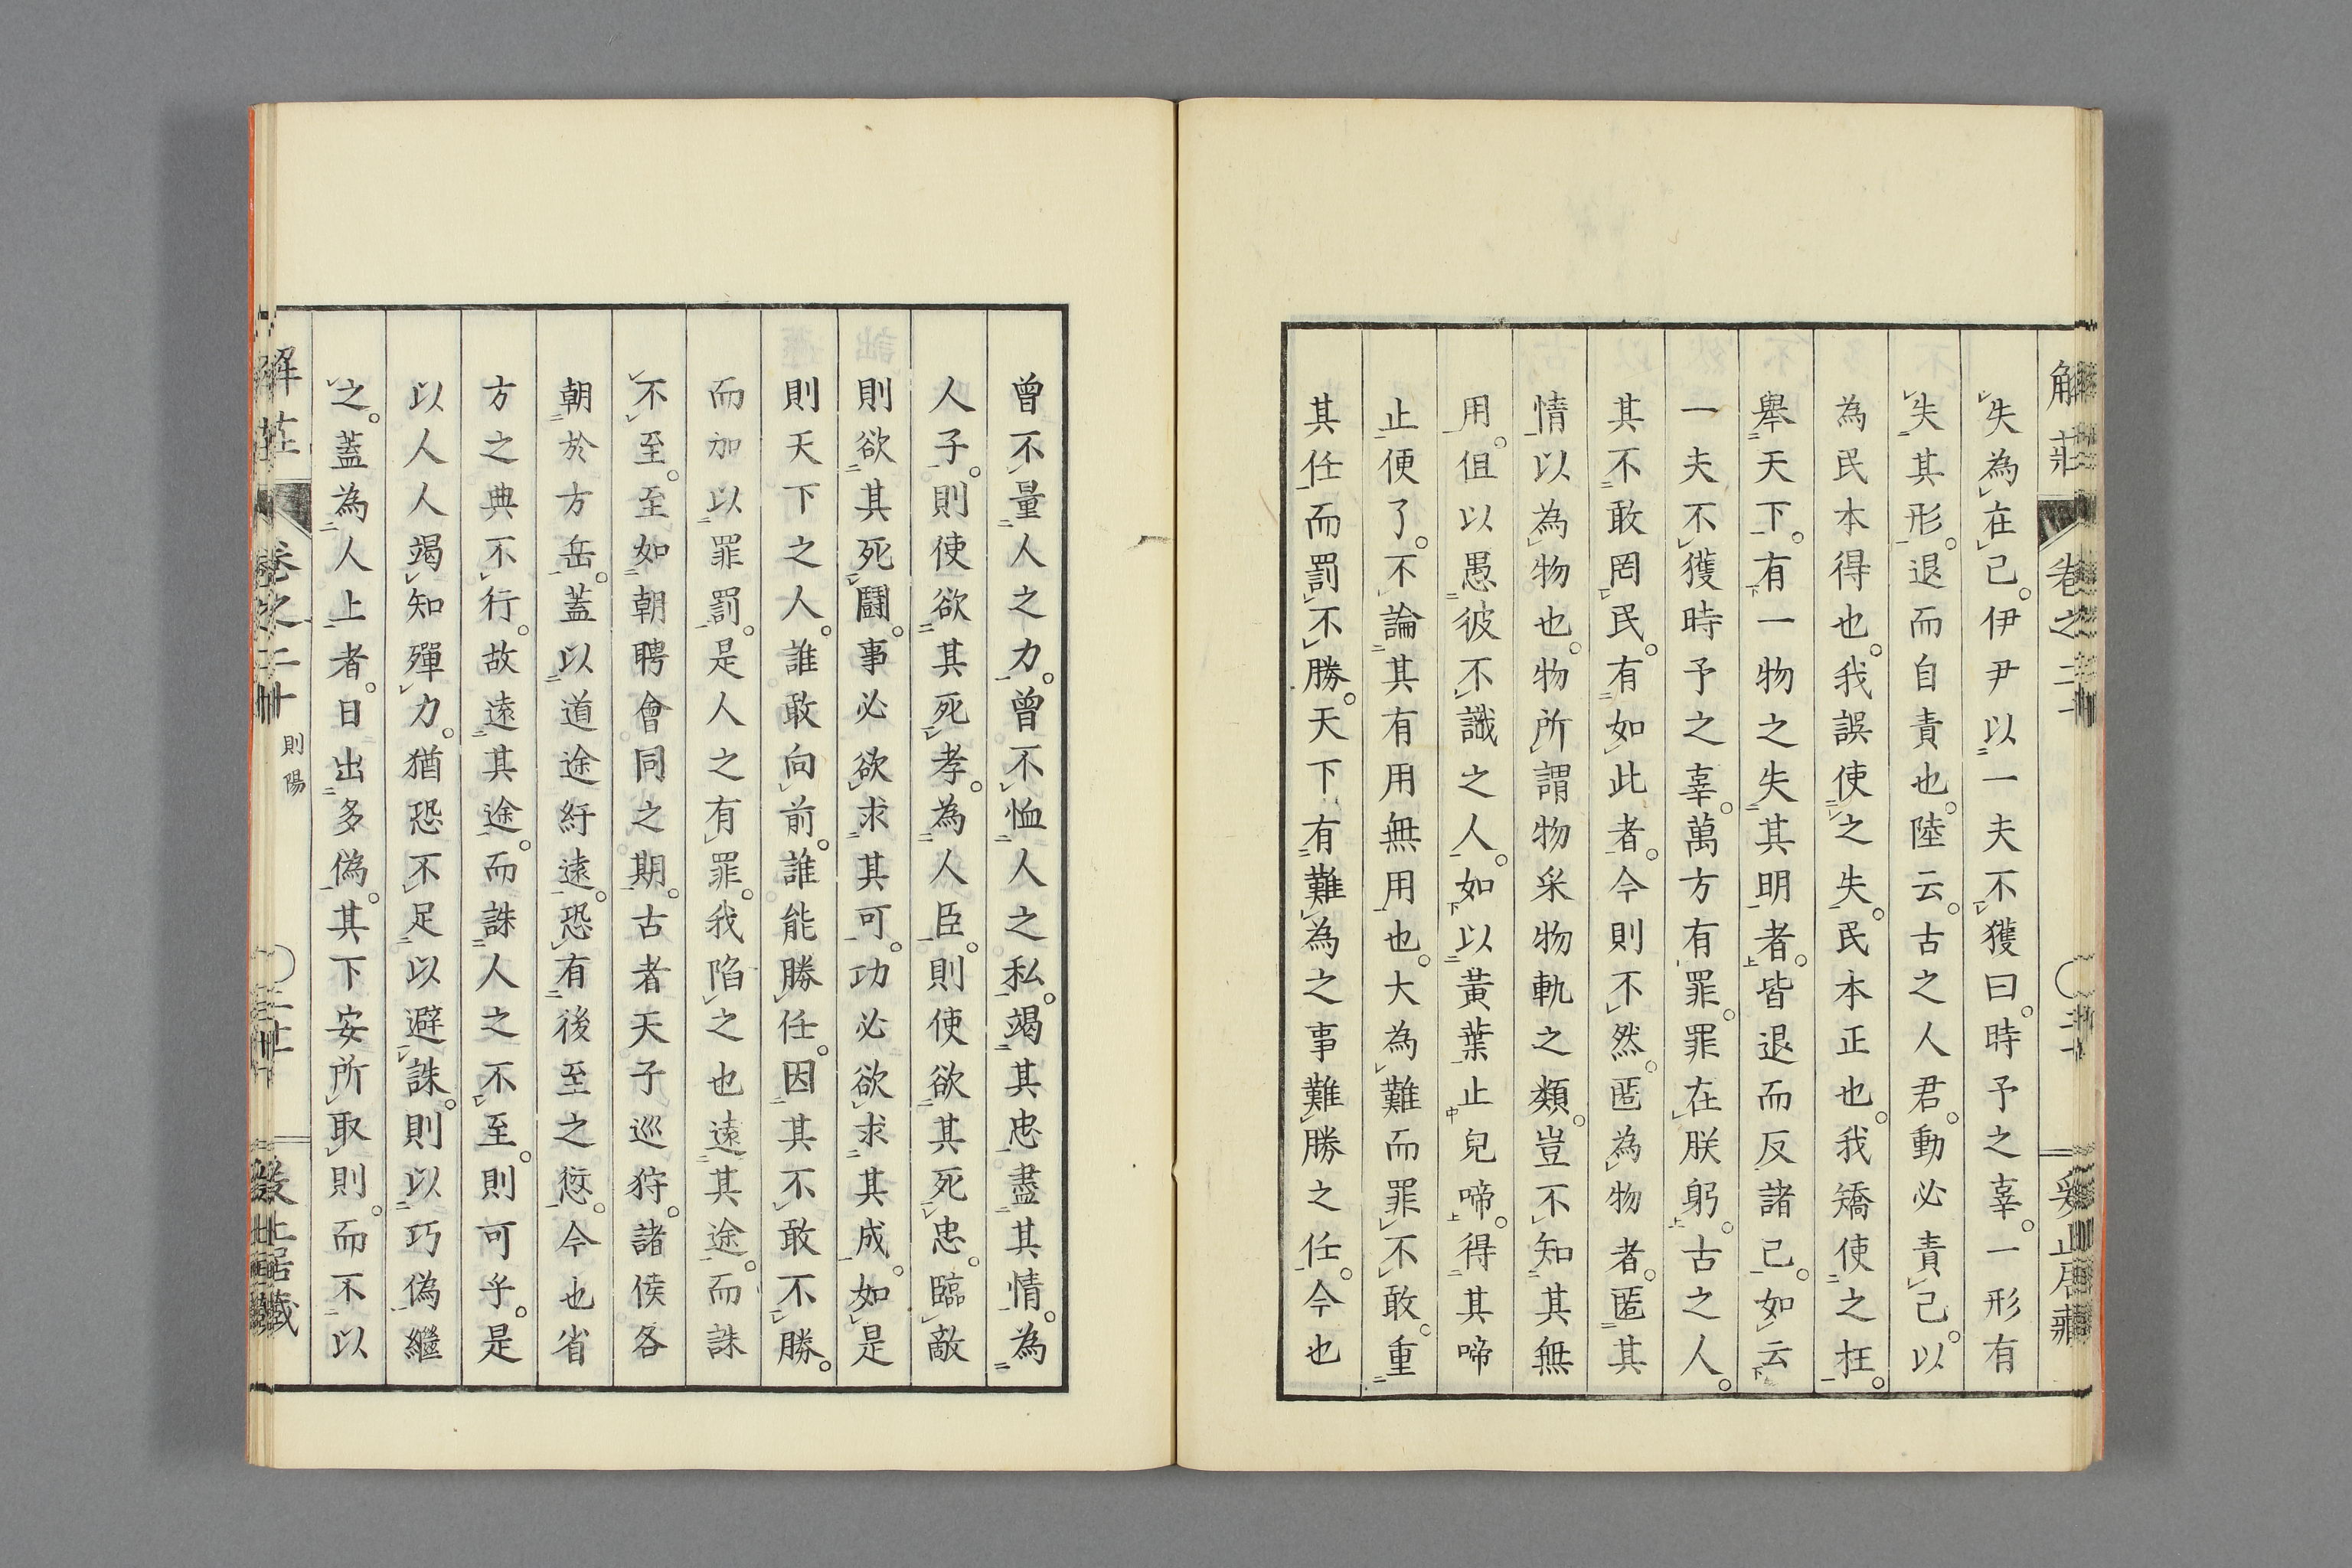 解莊　卷之二十
失為在己。伊尹以一夫不獲曰。時予之辜。一形有
失其形。退而自責也。陸云。古之人君。動必責己。以
為民本得也。我誤使之失。民本正也。我矯使之枉。
舉天下。有一物之失其明者。皆退而反諸己。如云
一夫不獲時予之辜。萬方有罪。罪在朕躬。古之人。
其不敢罔民。有如此者。今則不然。匿為物者。匿其
情以為物也。物所謂物采物軌之類。豈不知其無
用。但以愚彼不識之人。如以黃葉止兒啼。得其啼
止便了。不論其有用無用也。大為難而罪不敢。重
其任而罰不勝。天下有難為之事難勝之任。今也
曾不量人之力。曾不恤人之私。竭其忠盡其情。為
人子。則使欲其死孝。為人臣。則使欲其死忠。臨敵
則欲其死鬪。事必欲求其可。功必欲求其成。如是
則天下之人。誰敢向前。誰能勝任。因其不敢不勝。
而加以罪罰。是人之有罪。我陷之也遠其途。而誅
不至。至如朝聘會同之期。古者天子巡狩。諸侯各
朝於方岳。蓋以道途紆遠。恐有後至之愆。今也省
方之典不行。故遠其途。而誅人之不至。則可乎。是
以人人竭知殫力。猶恐不足以避誅。則以巧偽繼
之。蓋為人上者。日出多偽。其下安所取則。而不以
解莊　卷之二十　則陽